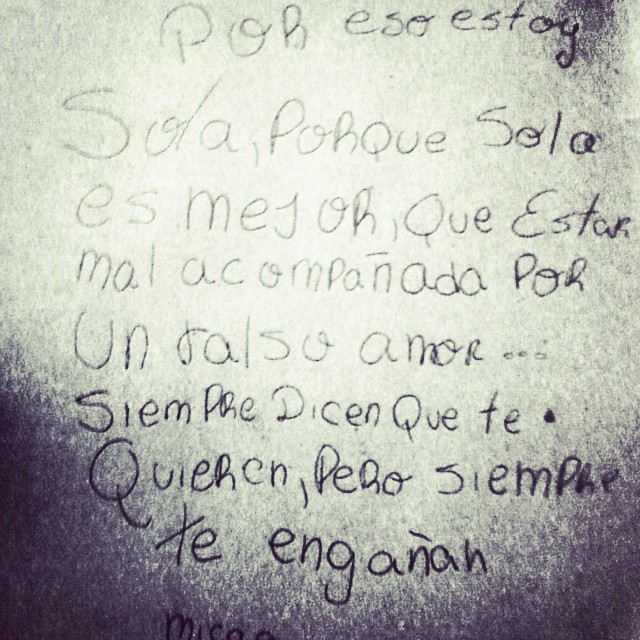 Por eso estoy
Sola, Porque Sola
es mejor, Que Estar
mal acompañada Por
Un falso amor...
Siempre Dicen Que te
Quieren, Pero siempre
te engañan